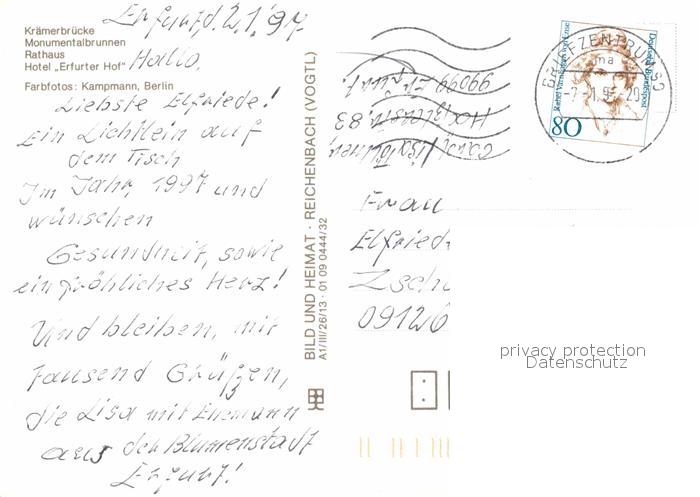 Krämerbrücke
Monumentalbrunnen
Rathaus
Hotel „Erfurter Hof“
Farbfotos: Kampmann, Berlin
Erfurt d. 2.1.97
Hallo,
Liebste Elfriede!
Ein Lichtlein auf
dem Tisch
Im Jahr, 1997 und
wünschen
Gesundheit, sowie
ein fröhliches Herz!
Und bleiben, mit
Tausend Grüßen,
die Lisa mit Ehemann
aus der Blumenstadt
Erfurt!
BILD UND HEIMAT · REICHENBACH (VOGTL)
A1/III/26/13 · 01 09 0444/32
Lisa
83
99099 Erfurt
BRIEFZENTRUM 99
Deutsche Bundespost
Rahel Varnhagen von Ense
80
Frau
Elfried
Zsch
09126
privacy protection
Datenschutz